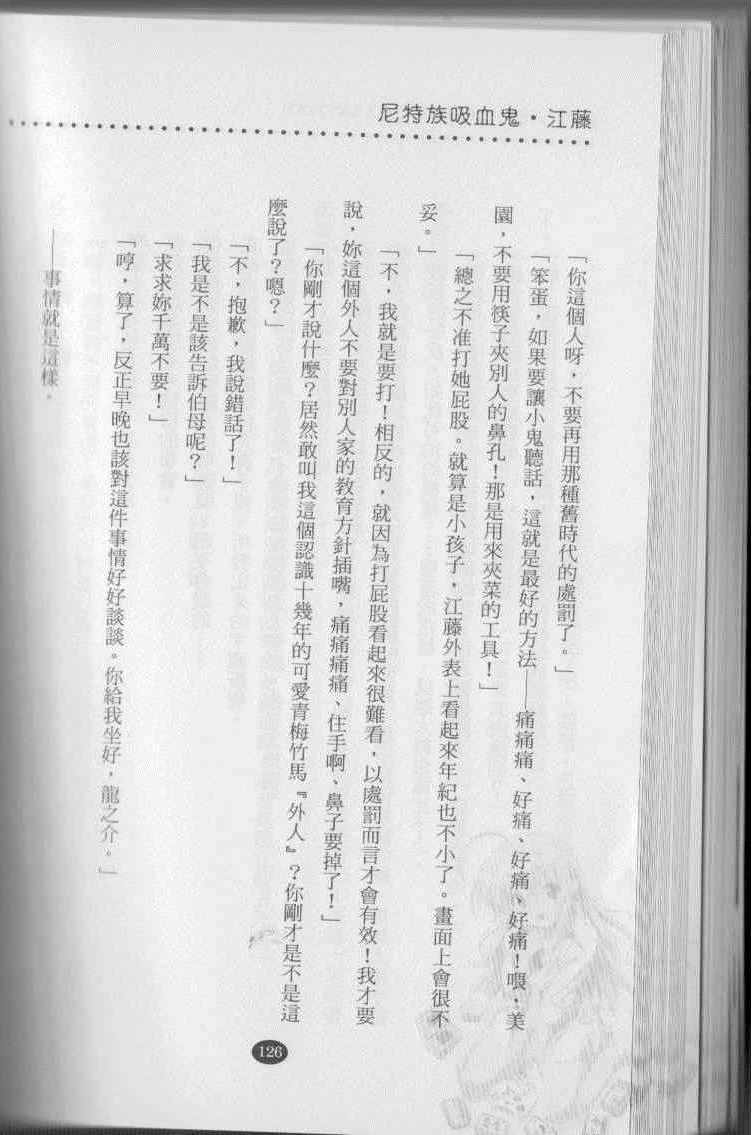 尼特族吸血鬼・江藤
「你這個人呀，不要再用那種舊時代的處罰了。」
「笨蛋，如果要讓小鬼聽話，這就是最好的方法——痛痛痛、好痛、好痛、好痛！喂，美
園，不要用筷子夾別人的鼻孔！那是用來夾菜的工具！」
「總之不准打她屁股。就算是小孩子，江藤外表上看起來年紀也不小了。畫面上會很不
妥。」
「不，我就是要打！相反的，就因為打屁股看起來很難看，以處罰而言才會有效！我才要
說，妳這個外人不要對別人家的教育方針插嘴，痛痛痛痛、住手啊、鼻子要掉了！」
「你剛才說什麼？居然敢叫我這個認識十幾年的可愛青梅竹馬『外人』？你剛才是不是這
麼說了？嗯？」
「不，抱歉，我說錯話了！」
「我是不是該告訴伯母呢？」
「求求妳千萬不要！」
「哼，算了，反正早晚也該對這件事情好好談談。你給我坐好，龍之介。」
——事情就是這樣。
126